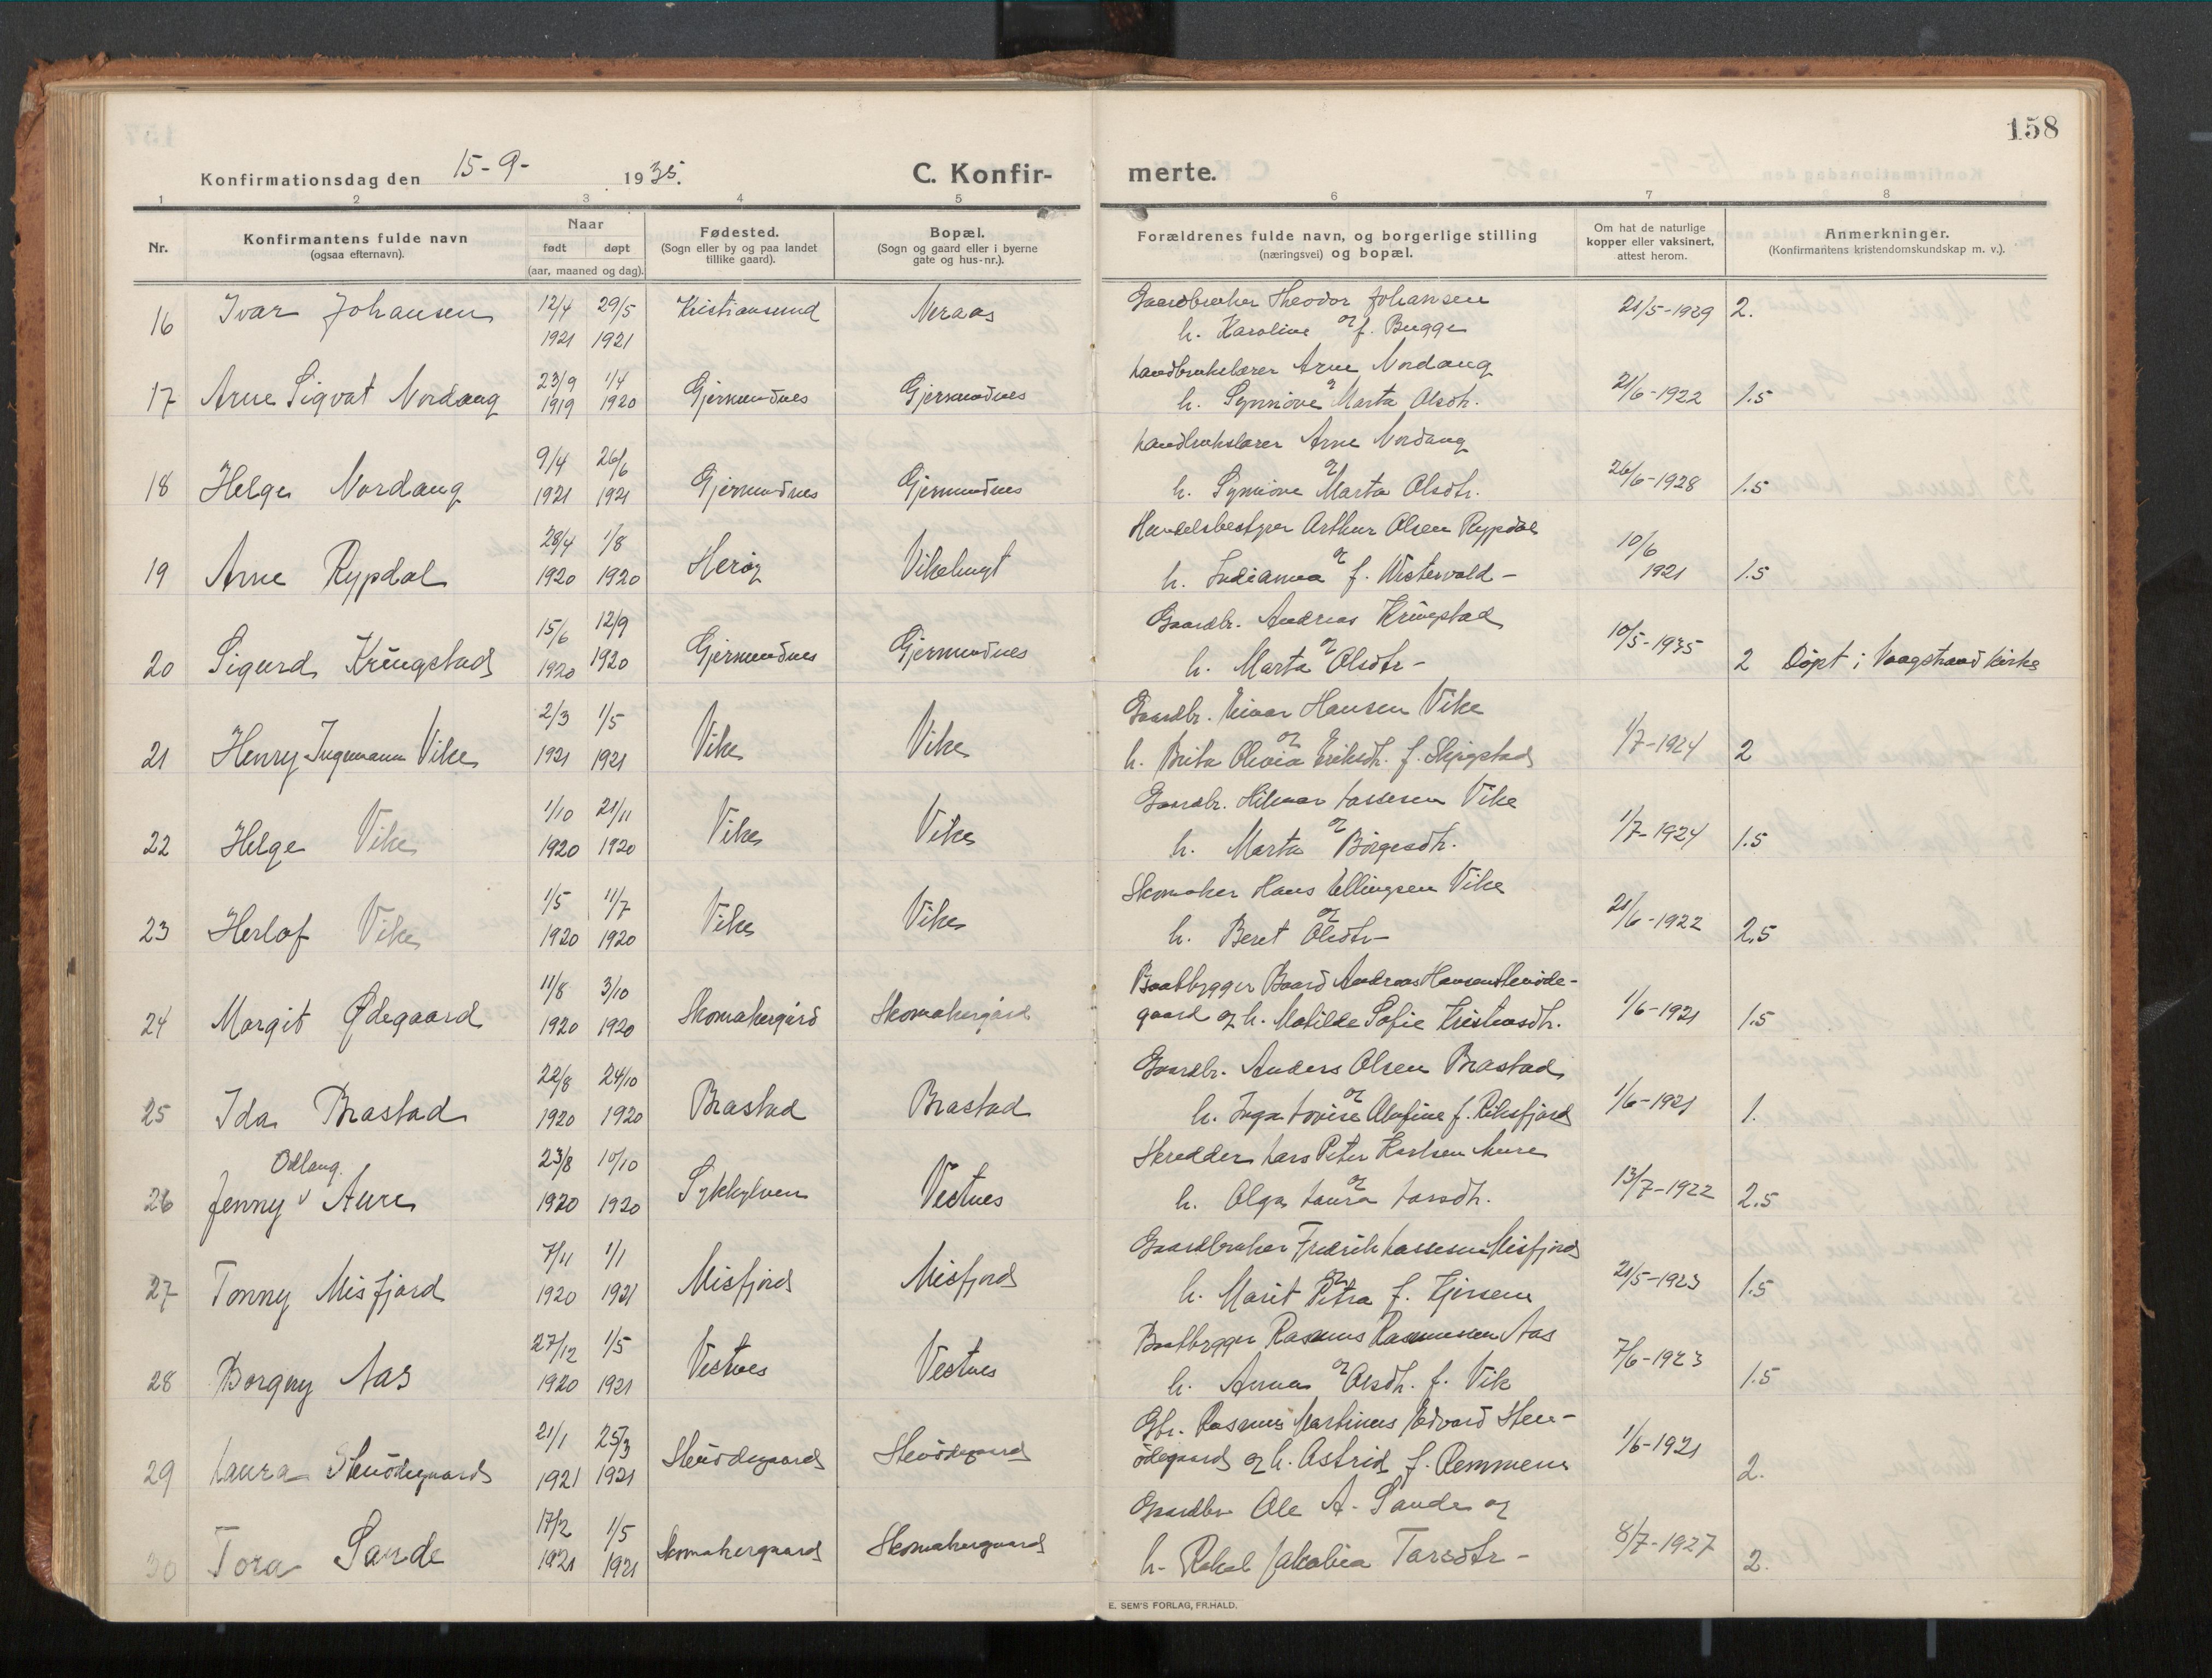 158
Konfirmationsdag den 15-9- 1935. C. Konfir- merte.
1 2 3 4 5 6 7 8
Nr.
Konfirmantens fulde navn
(ogsaa efternavn).
Naar
født døpt
(aar, maaned og dag).
Fødested.
(Sogn eller by og paa landet
tillike gaard).
Bopæl.
(Sogn og gaard eller i byerne
gate og hus-nr.).
Forældrenes fulde navn, og borgerlige stilling
(næringsvei) og bopæl.
Om hat de naturlige
kopper eller vaksinert,
attest herom.
Anmerkninger.
(Konfirmantens kristendomskundskap m. v.).
16 Ivar Johansen 12/4 29/5 Kristiansund Neraas Gaardbruker Theodor Johansen 21/5-1929 2.
1921 1921 og
h. Karoline f. Bugge
17 Arne Sigvat Nordang 23/9 1/4 Gjermundnes Gjermundnes Landbrukslærer Arne Nordang 21/6-1922 1.5
1919 1920 og
h. Synnöve Marta Olsdtr.
18 Helge Nordang 9/4 26/6 Gjermundnes Gjermundnes Landbrukslærer Arne Nordang 26/6-1928 1.5
1921 1921 og
h. Synnöve Marta Olsdtr.
19 Arne Rypdal 28/4 1/8 Herøy Vikebugt Handelsbestyrer Arthur Olsen Rypdal 10/6 1921 1.5
1920 1920 og
h. Indianna f. Westervold -
20 Sigurd Kringstad 15/6 12/9 Gjermundnes Gjermundnes Gaardbr. Andreas Kringstad 10/5-1935 2 Døpt i Vaagstrand kirke
1920 1920 og
h. Marta Olsdtr -
21 Henry Ingemann Vike 2/3 1/5 Vike Vike Gaardbr. Einar Hansen Vike 1/7-1924 2
1921 1921 og
h. Brita Olivia Eriksdtr. f. Skjegstad
22 Helge Vike 1/10 21/11 Vike Vike Gaardbr. Hilmar Lassesen Vike 1/7-1924 1.5
1920 1920 og
h. Marta Börgesdtr.
23 Herlof Vike 1/5 11/7 Vike Vike Skomaker Hans Ellingsen Vike 21/6-1922 2.5
1920 1920 og
h. Beret Olsdtr-
24 Margit Ødegaard 11/8 3/10 Skomakergård Skomakergård Baatbygger Baard Andreas Hansen Stenöde-
1920 1920 gaard og h. Matilde Sofie Kristensdtr. 1/6-1921 1.5
25 Ida Brastad 22/8 24/10 Brastad Brastad Gaardbr. Anders Olsen Brastad 1/6-1921 1.
1920 1920 og
h. Inga Lovise Olufine f. Riksfjord
26 Jenny Odlaug. Aure 23/8 10/10 Sykkylven Vestnes Skredder Lars Peter Karlsen Aure 13/7-1922 2.5
1920 1920 og
h. Olga Laura Larsdtr.
27 Tonny Misfjord 7/11 1/1 Misfjord Misfjord Gaardbruker Fredrik Lassesen Misfjord 21/5-1923 1.5
1920 1921 og
h. Marit Petra f. Kjersem
28 Borgny Aas 27/12 1/5 Vestnes Vestnes Baatbygger Rasmus Rasmussen Aas 7/6-1923 1.5
1920 1921 og
h. Anna Olsdtr. f. Vik
29 Laura Stenödegaard 21/1 25/3 Stenödegaard Stenödegaard Gbr. Rasmus Martinus Edvard Sten-
1921 1921 ödegaard og h. Astrid f. Remmem 1/6-1921 2.
30 Tora Sande 17/2 1/5 Skomakergaard Skomakergaard Gaardbr Ole A. Sande og 8/7-1927 2.
1921 1921 h. Rakel Jakobia Tarsdtr -
E. SEM'S FORLAG, FR.HALD.